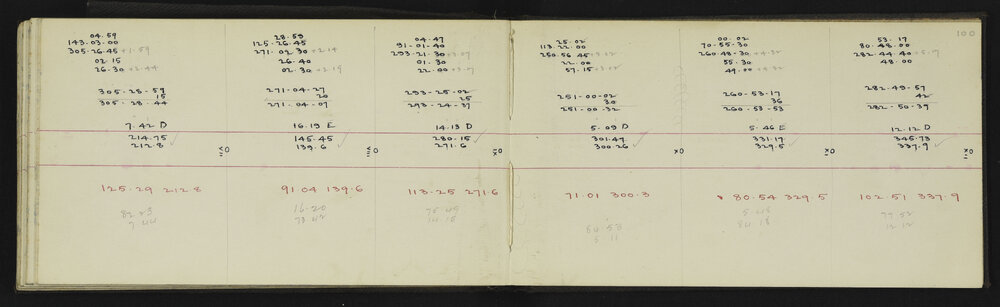 04.59
143.03.00
305.26.45 +1.59
02.15
26.30 +2.44
305-28-59
15
305.28.44
7.42 D
214.75
212.8
125.29 212.8
82 23
7 44
28.59
125-26.45
271.02.30 +2.14
26.40
02.30 +2.19
271-04-27
20
271.04-07
16.19 E
145.45
139.6
91 04 139.6
16-20
73 42
04.47
91-01.40
293-21.30 +3.07
01.30
22.00
293-25-02
25
293-24-37
14.13 D
280.15
271.6
113-25 271.6
75 49
14 15
25.02
113.22.00
250.56.45 +3.12
22.00
57.15
251-00-02
30
251-00.32
5.09 D
301.47
300.26
71.01 300.3
64 58
5 11
00.02
70-55.30
260-48.30 +4.32
55.30
49.00 +4.32
260-53-17
36
260-53-53
5.46 E
331.17
329.5
80.54 329.5
5 45
84 18
100
53.17
80.48.00
282.44.40 +5.17
282-49-57
42
282-50-39
12.12 D
345.73
337.9
102.51 337.9
77 52
12 12